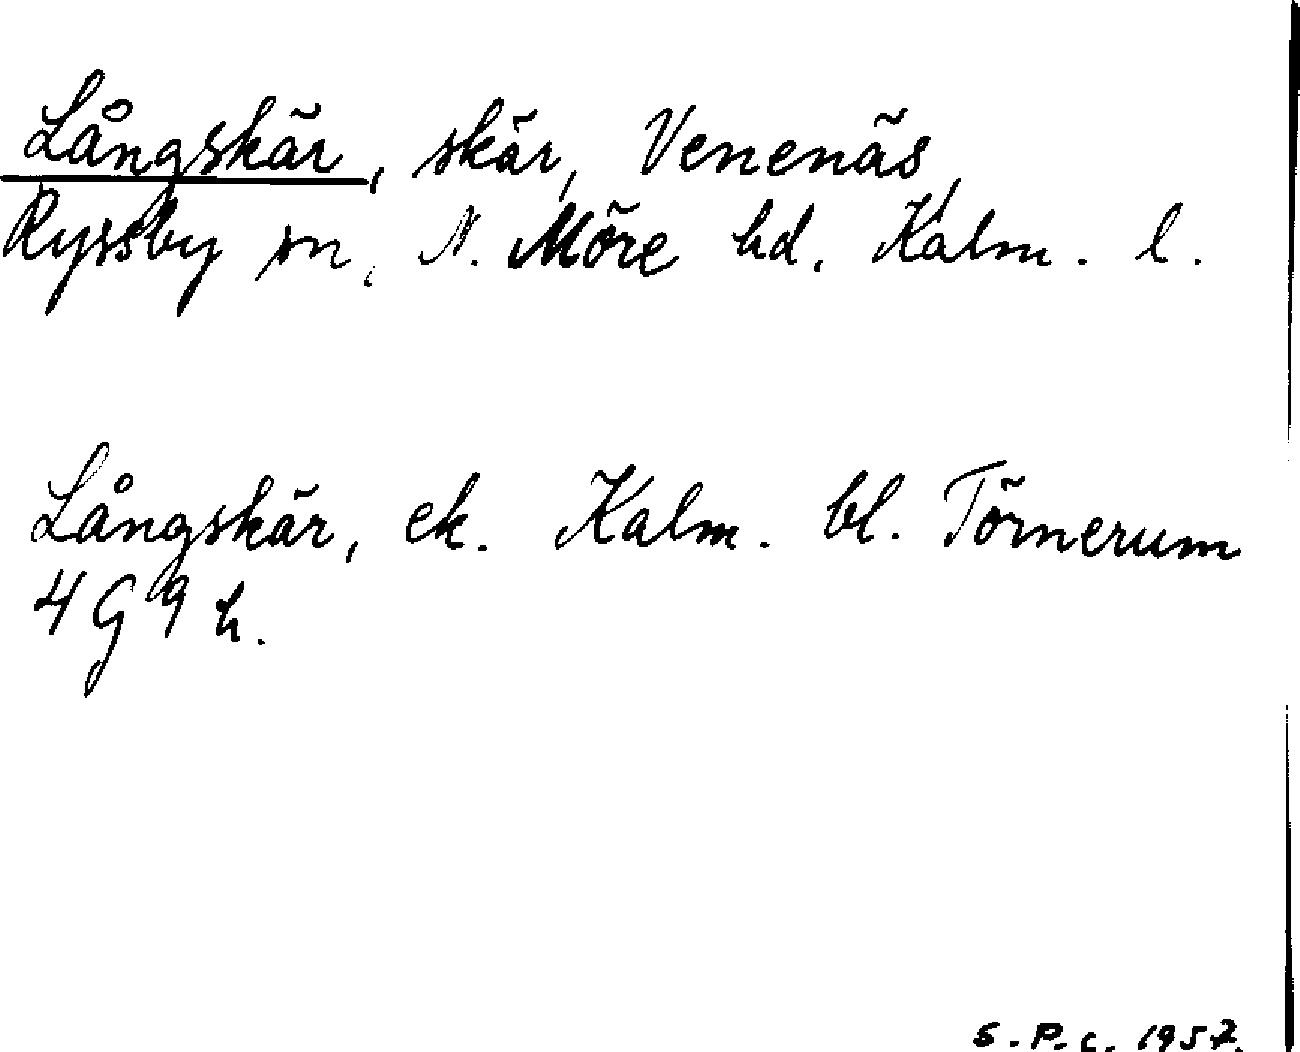 Långskär, skär, Venenäs,
Ryssby sn, N. Möre hd. Kalm. l.
Långskär, ek. Kalm. bl. Törnerum
4 G 9 h.
S.P.C. 1957.